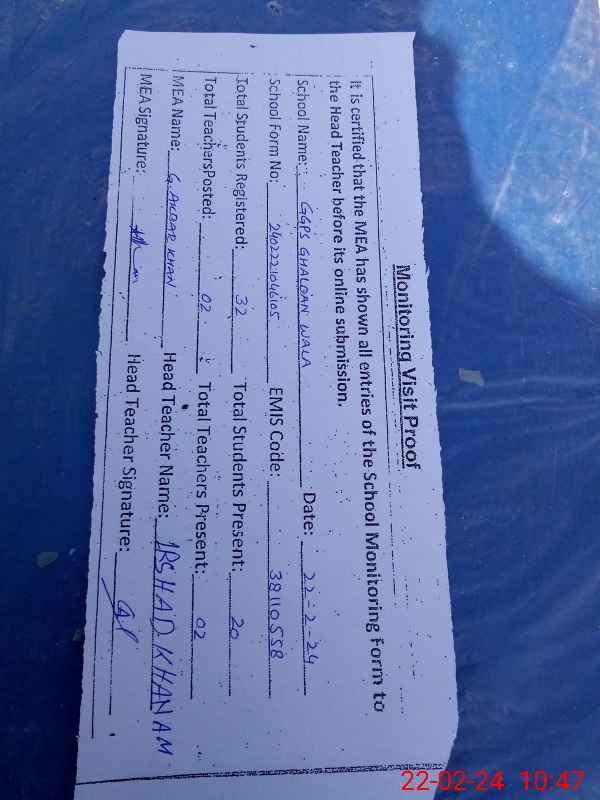 Monitoring Visit Proof
It is certified that the MEA has shown all entries of the School Monitoring Form to
the Head Teacher before its online submission.
School Name: GGPS GHALOAN WALA Date: 22-2-24
School Form No: 2402221046105 EMIS Code: 38110558
Total Students Registered: 32 Total Students Present: 20
Total TeachersPosted: 02 Total Teachers Present: 02
MEA Name: G. AKBAR KHAN Head Teacher Name: IRSHAD KHANAM
MEA Signature: Head Teacher Signature:
22-02-24 10:47